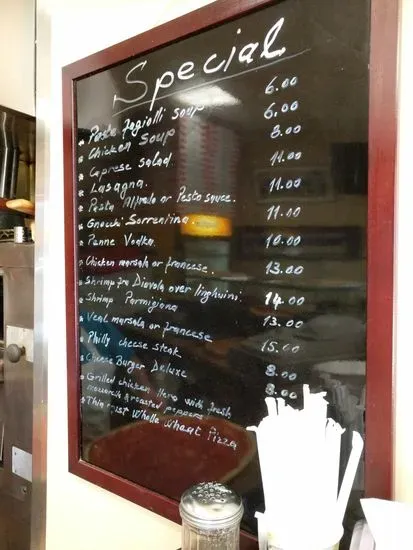 Special
* Pasta Fagiolli soup 6.00
* Chicken Soup 6.00
* Caprese salad. 8.00
* Lasagna. 11.00
* Pasta Alfredo or Pesto sauce. 11.00
* Gnocchi Sorrentina. 11.00
* Penne Vodka. 10.00
* Chicken marsala or francese. 13.00
* Shrimp fra Diavola over linghuini. 14.00
* Shrimp Parmigiana 13.00
* Veal marsala or francese 15.00
* Philly cheese steak 8.00
* Cheese Burger Deluxe 8.00
* Grilled chicken Hero with fresh
mozzarela & roasted peppers
* Thin crust Whole wheat Pizza